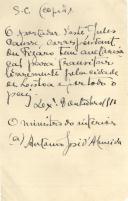 S. C. (copia)
O portador deste Jules
Causse, correspondant
du Figaro tem autorisa
ção para transitar
livremente pela cidade
de Lisboa e por todo o
paiz.
Lxª, 8 outubro 1910
O ministro do interior
(a) Antonio José Almeida